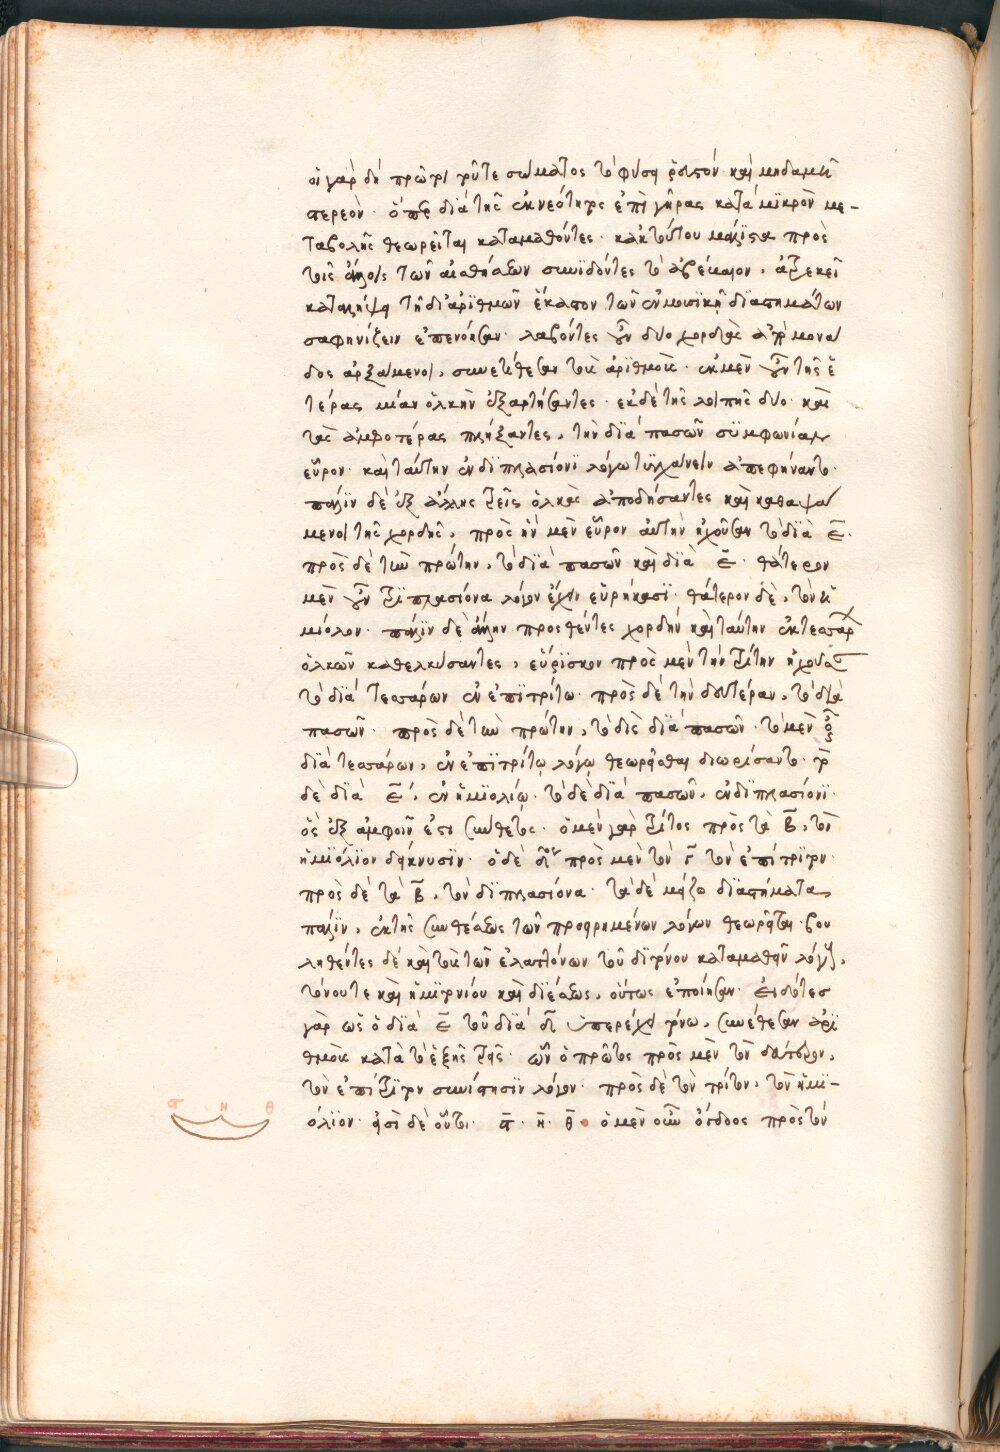 οἱ γὰρ δὴ πρῶτοι τοῦτε σώματος τὸ φύσει ῥευστόν καὶ μηδαμῆ
στερεὸν· ὅπερ διὰ τῆς ἐκ νεότητος ἐπὶ γῆρας κατὰ μϊκρὸν με-
ταβολῆς θεωρεῖται καταμαθόντες· κἀκ τούτου μάλϊστα πρὸς
τοῖς ἄλλοις τῶν αἰσθήσεων συνϊδόντες τὸ ἀβέβαιον, ἀτρεκεῖ
καταλήψει τῆ δι' ἀρϊθμῶν ἕκαστον τῶν ἐν μουσϊκῇ διαστημάτων
σαφηνίζειν ἐπενόησαν· λαβόντες οὖν δύο χορδὰς ἀπὸ μονά
δος ἀρξάμενοι, συνετίθεσαν τοὺς ἀρϊθμοὺς· ἐκ μὲν οὖν τῆς ἑ
τέρας μίαν ὁλκὴν ἐξαρτήσαντες· ἐκ δὲ τῆς λοιπῆς δύο· καὶ
τὰς ἀμφοτέρας πλήξαντες, τὴν δϊὰ πασῶν συμφωνίαν
εὗρον· καὶ ταύτην ἐν δϊπλασίονϊ λόγω τυγχάνειν ἀπεφήναντο·
πάλϊν δὲ ἐξ ἄλλης τρεῖς ὁλκὰς ἀποδήσαντες καὶ καθαψά
μενοι τῆς χορδῆς, πρὸς ἣν μὲν εὗρον αὐτὴν ἠχοῦσαν τὸ δϊὰ ε̄·
πρὸς δὲ τὴν πρώτην, τὸ δϊὰ πασῶν καὶ δϊὰ ε̄· θάτερον
μὲν οὖν τρϊπλασίονα λόγον ἔχειν εὑρήκασϊ· θάτερον δὲ, τὸν ἡ
μιόλιον· πάλϊν δὲ ἄλλην προσθέντες χορδὴν καὶ ταύτην ἐκ τεσσάρ
ὁλκῶν καθελκύσαντες, εὕρϊσκον πρὸς μὲν τὴν τρίτην ἠχοῦσαν
τὸ δϊὰ τεσσάρων ἐν ἐπϊτρίτω· πρὸς δὲ τὴν δευτέραν, τὸ δϊὰ
πασῶν· πρὸς δὲ τὴν πρώτην, τὸ δὶς δϊὰ πασῶν· τὸ μὲν οὖν
δϊὰ τεσσάρων, ἐν ἐπϊτρίτῳ λόγῳ θεωρεῖσθαι διωρίσαντο· τὸ
δὲ δϊὰ ε̄, ἐν ἡμϊολίῳ· τὸ δὲ δϊὰ πασῶν, ἐν δϊπλασίονϊ·
ὃς ἐξ ἀμφοῖν ἐστι σύνθετος· ὁ μὲν γὰρ τρίτος πρὸς τὰ β̄, τὸν
ἡμϊόλϊον δείκνυσϊν· ὁ δὲ δ̄ος πρὸς μὲν τὸν γ̄ τὸν ἐπίτρϊτον·
πρὸς δὲ τὰ β̄, τὸν δϊπλασίονα· τὰ δὲ μείζω δϊαστήματα,
πάλϊν, ἐκ τῆς συνθέσεως τῶν προειρημένων λόγων θεωρεῖται· βου
ληθέντες δὲ καὶ τοὺς τῶν ἐλαττόνων τοῦ δϊτόνου καταμαθεῖν λόγους,
τόνου τε καὶ ἡμϊτονίου καὶ δϊέσεως, οὕτως ἐποίησαν· εἰδότεσ
γὰρ ὡς ὁ δϊὰ ε̄ τοῦ δϊὰ δ̄ ὑπερέχει τόνω, συνέθεσαν ἀρϊ
θμοὺς κατὰ τὸ ἑξῆς τρεῖς· ὧν ὁ πρῶτος πρὸς μὲν τὸν δεύτερον,
τὸν ἐπίτρϊτον συνίστησϊν λόγον· πρὸς δὲ τὸν τρίτον, τὸν ἡμϊ-
όλϊον· εἰσὶ δὲ οὗτοι· ϛ̄· η̄· θ̄· ὁ μὲν οὖν ὄγδοος πρὸς τὸν
ϛ η θ